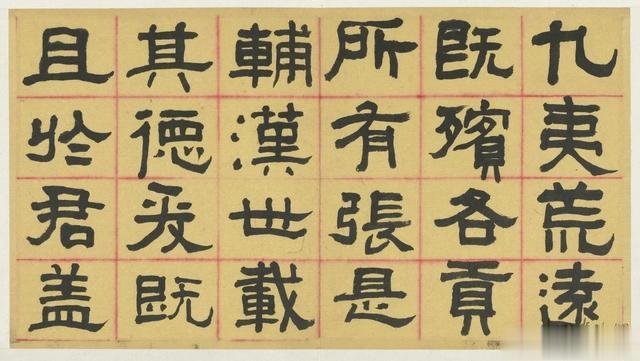 九夷荒遠
既殯各貢
所有張是
輔漢世載
其德爰既
且於君盖